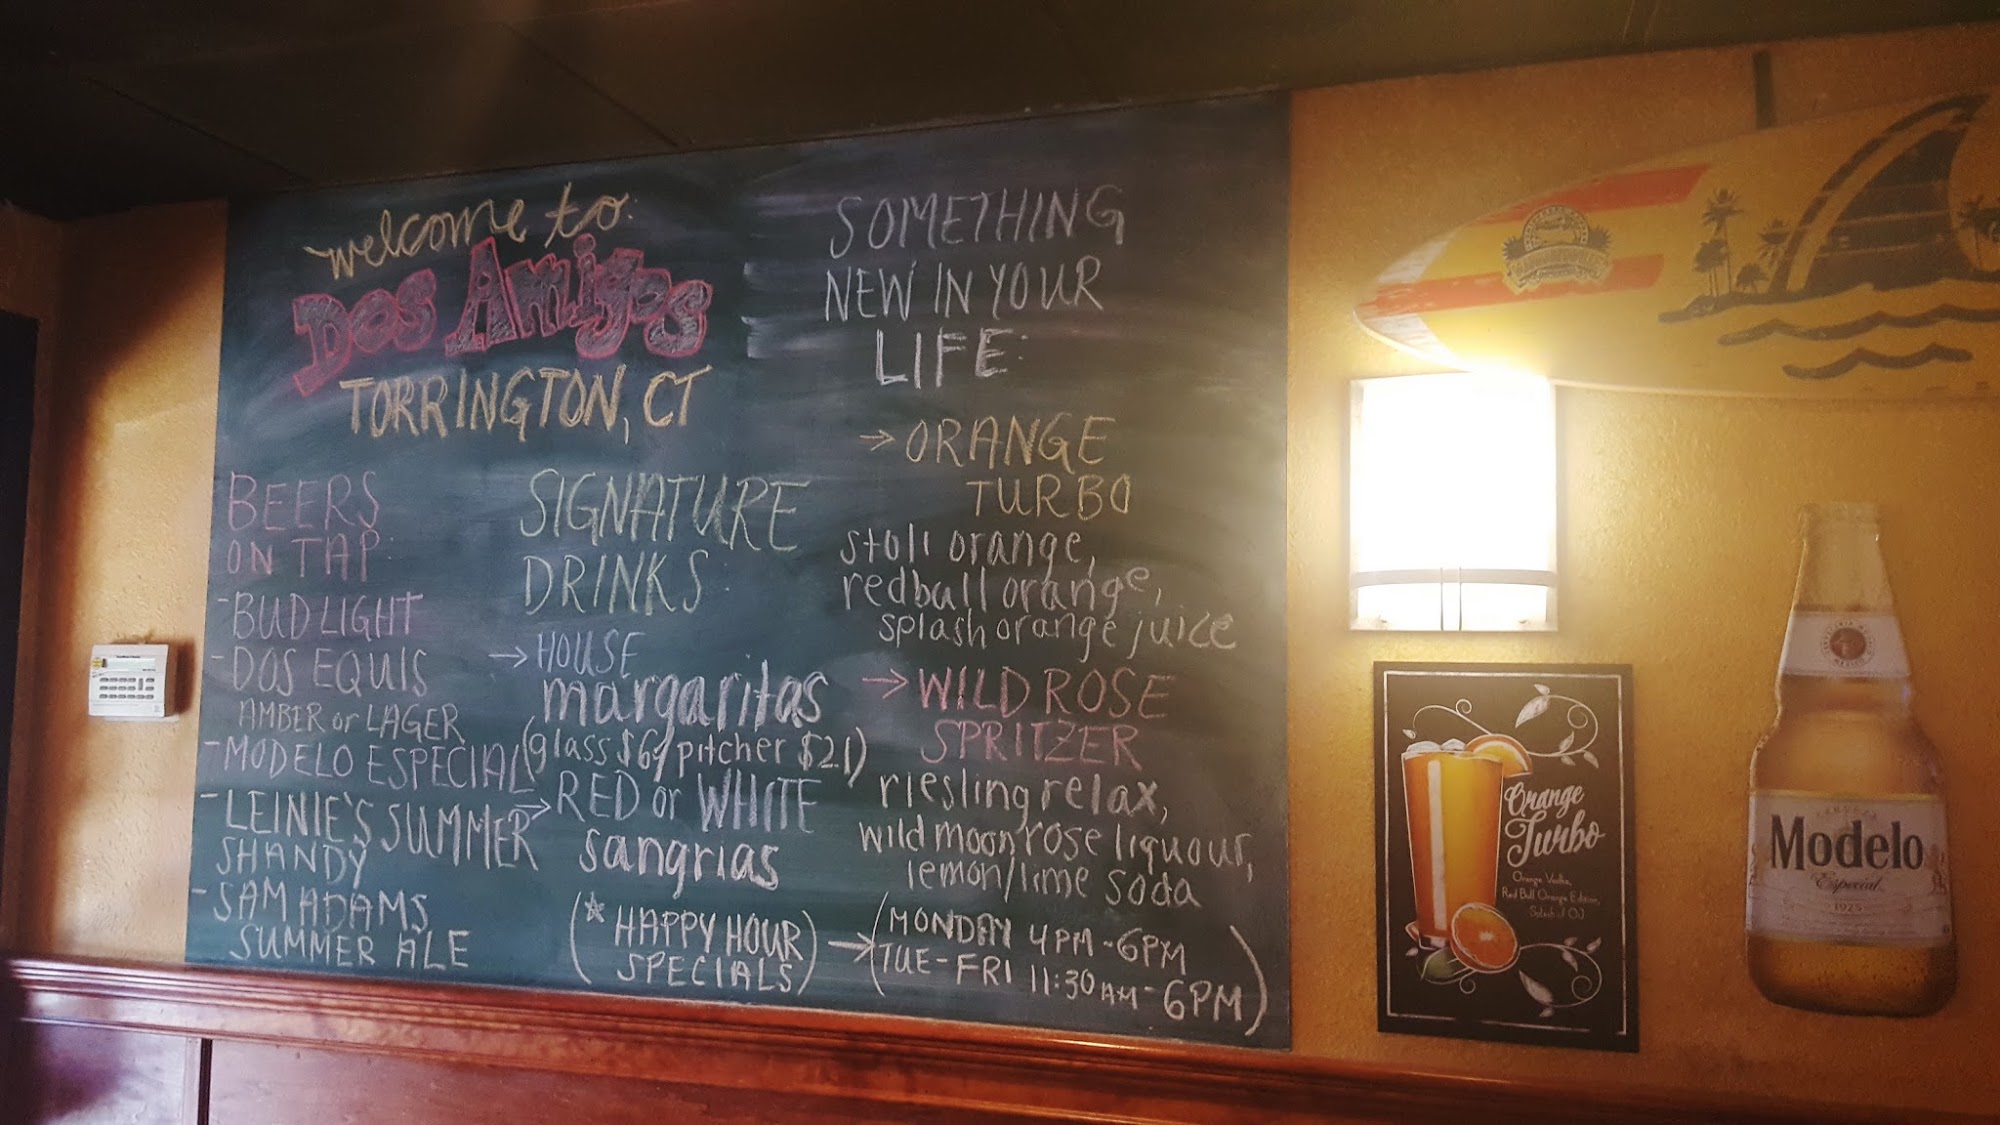 welcome to:
DOS Amigos
TORRINGTON, CT
BEERS
ON TAP:
-BUD LIGHT
-DOS EQUIS
AMBER or LAGER
-MODELO ESPECIAL
-LEINIE'S SUMMER
SHANDY
-SAM ADAMS
SUMMER ALE
SIGNATURE
DRINKS:
→HOUSE
margaritas
(glass $6/pitcher $21)
→RED or WHITE
sangrias
(*HAPPY HOUR
SPECIALS)
→(MONDAY 4PM-6PM
TUE-FRI 11:30AM-6PM)
SOMETHING
NEW IN YOUR
LIFE:
→ORANGE
TURBO
stoli orange,
redball orange,
splash orange juice
→WILD ROSE
SPRITZER
riesling relax,
wild moon rose liquour,
lemon/lime soda
Orange
Turbo
Orange Vodka,
Red Bull Orange Edition,
Splash of OJ
Modelo
Especial
1925